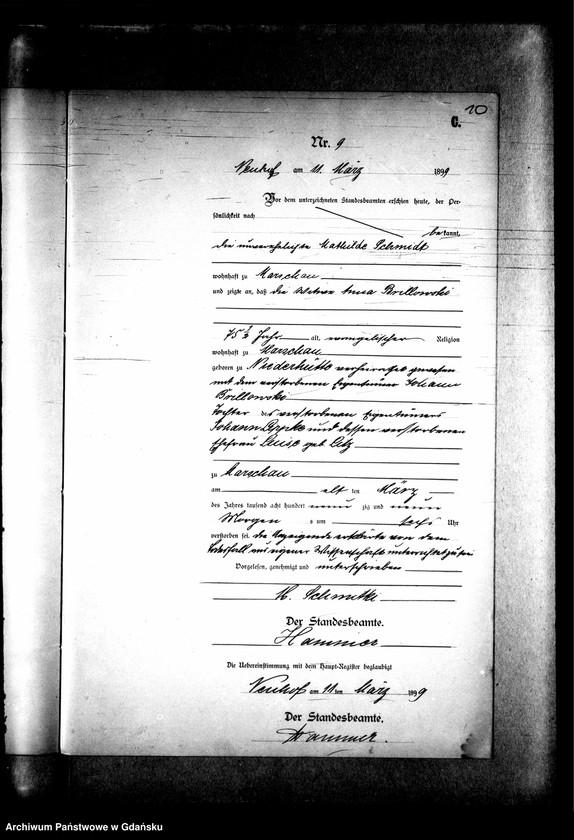 20
C.
Nr. 9
Neuhof am 11. März 1899
Vor dem unterzeichneten Standesbeamten erschien heute, der Per-
sönlichkeit nach
bekannt,
die unverehelichte Mathilde Schmidt
wohnhaft zu Marschau
und zeigte an, daß die Witwe Anna Brillowski
75 ½ Jahr alt, evangelischer Religion
wohnhaft zu Marschau
geboren zu Niederhütte verheirathet gewesen
mit dem verstorbenen Eigentümer Johann
Brillowski
Tochter des verstorbenen Eigentümers
Johann und dessen verstorbenen
Ehefrau Luise geb.
zu Marschau
am elf ten März
des Jahres tausend acht hundert neun zig und neun
Morgens um sechs Uhr
verstorben sei. die Anzeigende erklärte von dem
Todesfall aus eigener Wissenschaft unterrichtet zu sein
Vorgelesen, genehmigt und unterschrieben
M. Schmidt
Der Standesbeamte.
Hammer
Die Uebereinstimmung mit dem Haupt-Register beglaubigt
Neuhof am 11 ten März 1899
Der Standesbeamte.
Hammer.
Archiwum Państwowe w Gdańsku